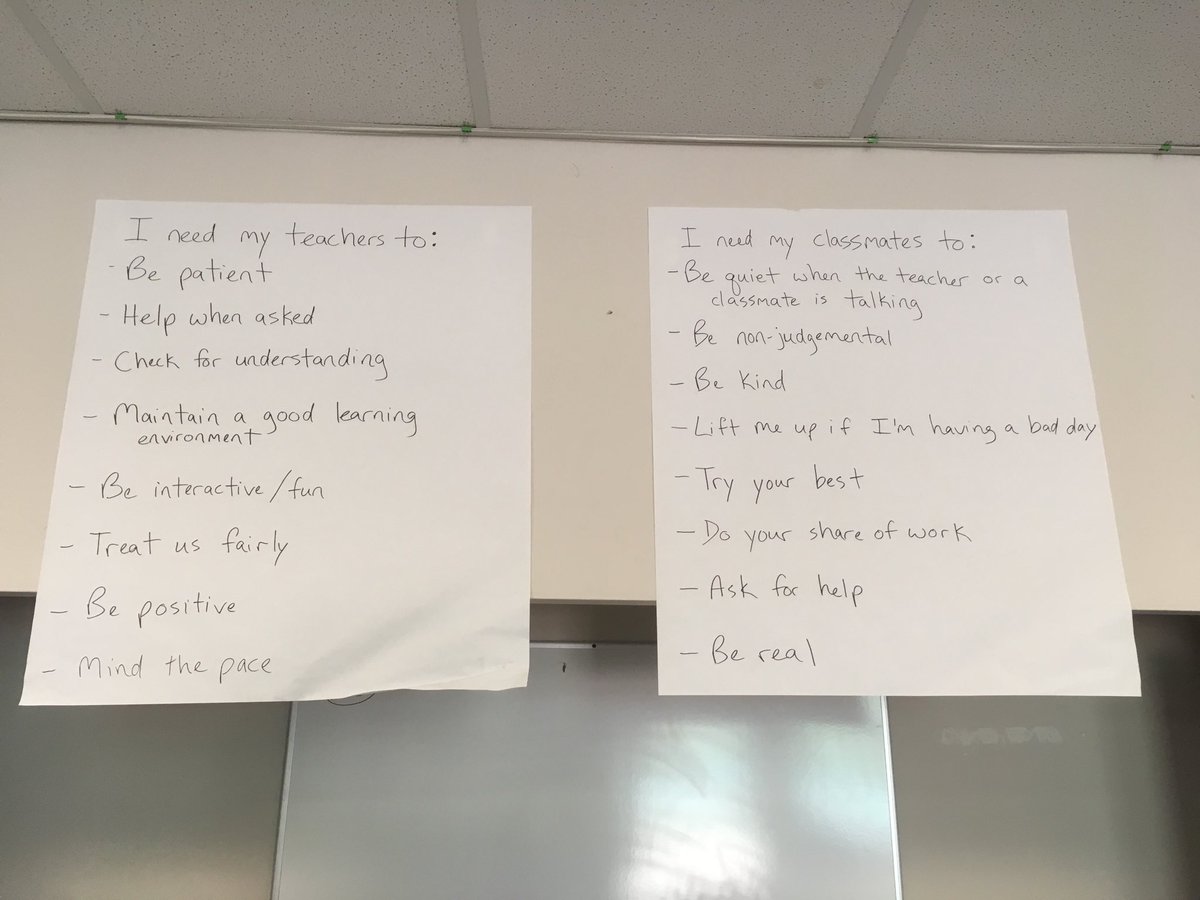 I need my teachers to:
- Be patient
- Help when asked
- Check for understanding
- Maintain a good learning
environment
- Be interactive/fun
- Treat us fairly
- Be positive
- Mind the pace
I need my classmates to:
- Be quiet when the teacher or a
classmate is talking
- Be non-judgemental
- Be kind
- Lift me up if I'm having a bad day
- Try your best
- Do your share of work
- Ask for help
- Be real